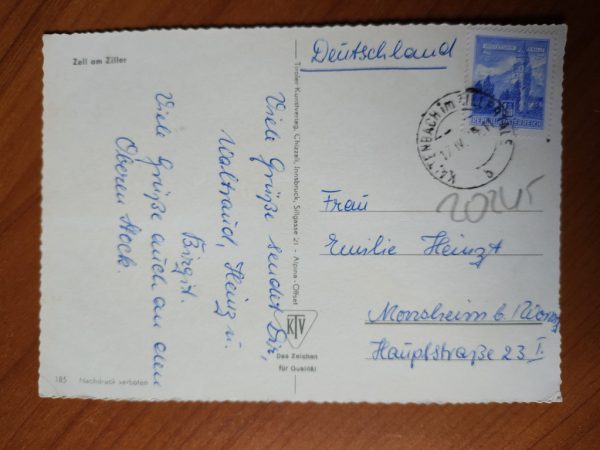 Zell am Ziller
Viele Grüße sendet Dir,
Waltraud, Heinz u.
Birgit.
Viele Grüße auch an den
Oberen Stock.
185 Nachdruck verboten
Tiroler Kunstverlag, Chizzali, Innsbruck, Sillgasse 21 - Alpina-Offset
KTV
Das Zeichen
für Qualität
Deutschland
REPUBLIK ÖSTERREICH
IM ZILLERTALE
Frau
Emilie Heinzt
Monsheim b.
Hauptstraße 23 I.